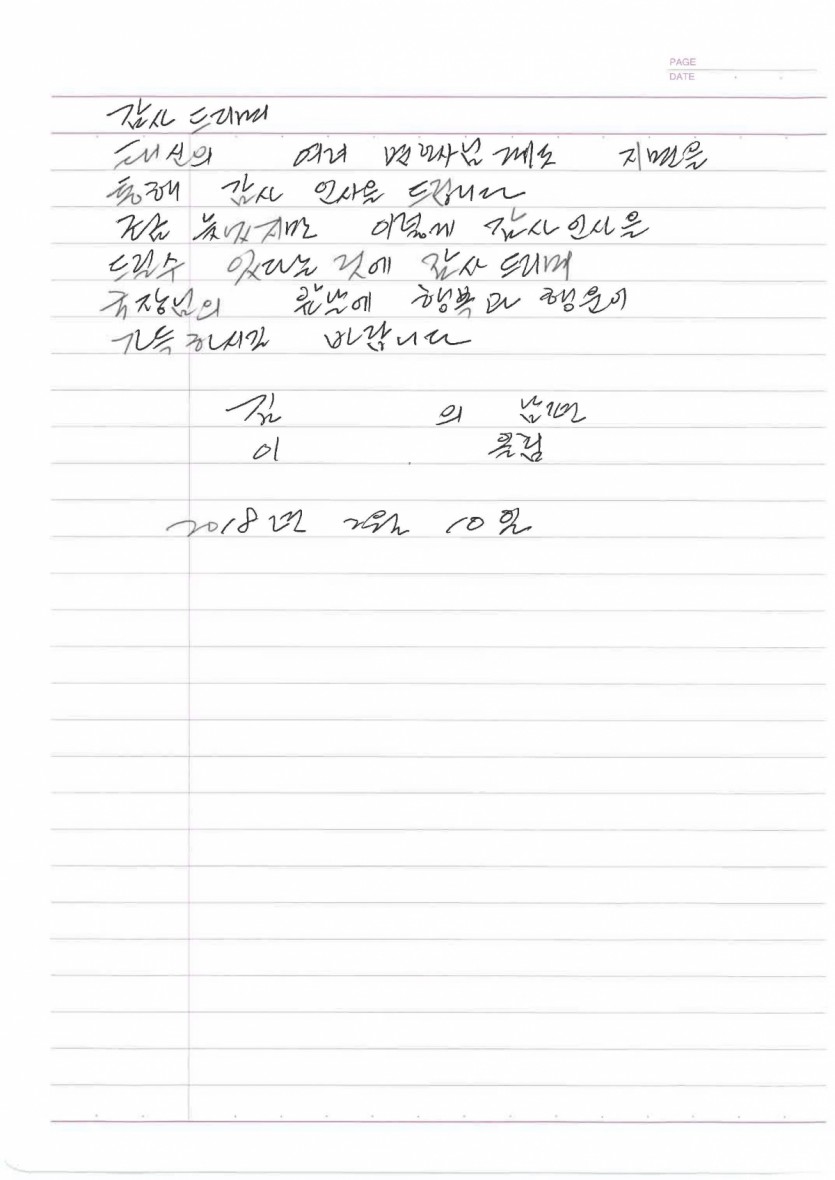 PAGE
DATE
감사 드리며
태신의 여러 변호사님께도 지면을
통해 감사 인사을 드립니다
조금 늦었지만 이렇게 감사 인사을
드릴수 있다는 것에 감사 드리며
국장님의 앞날에 행복과 행운이
가득하시길 바랍니다
김 의 남편
이 올림
2018년 2월 10일